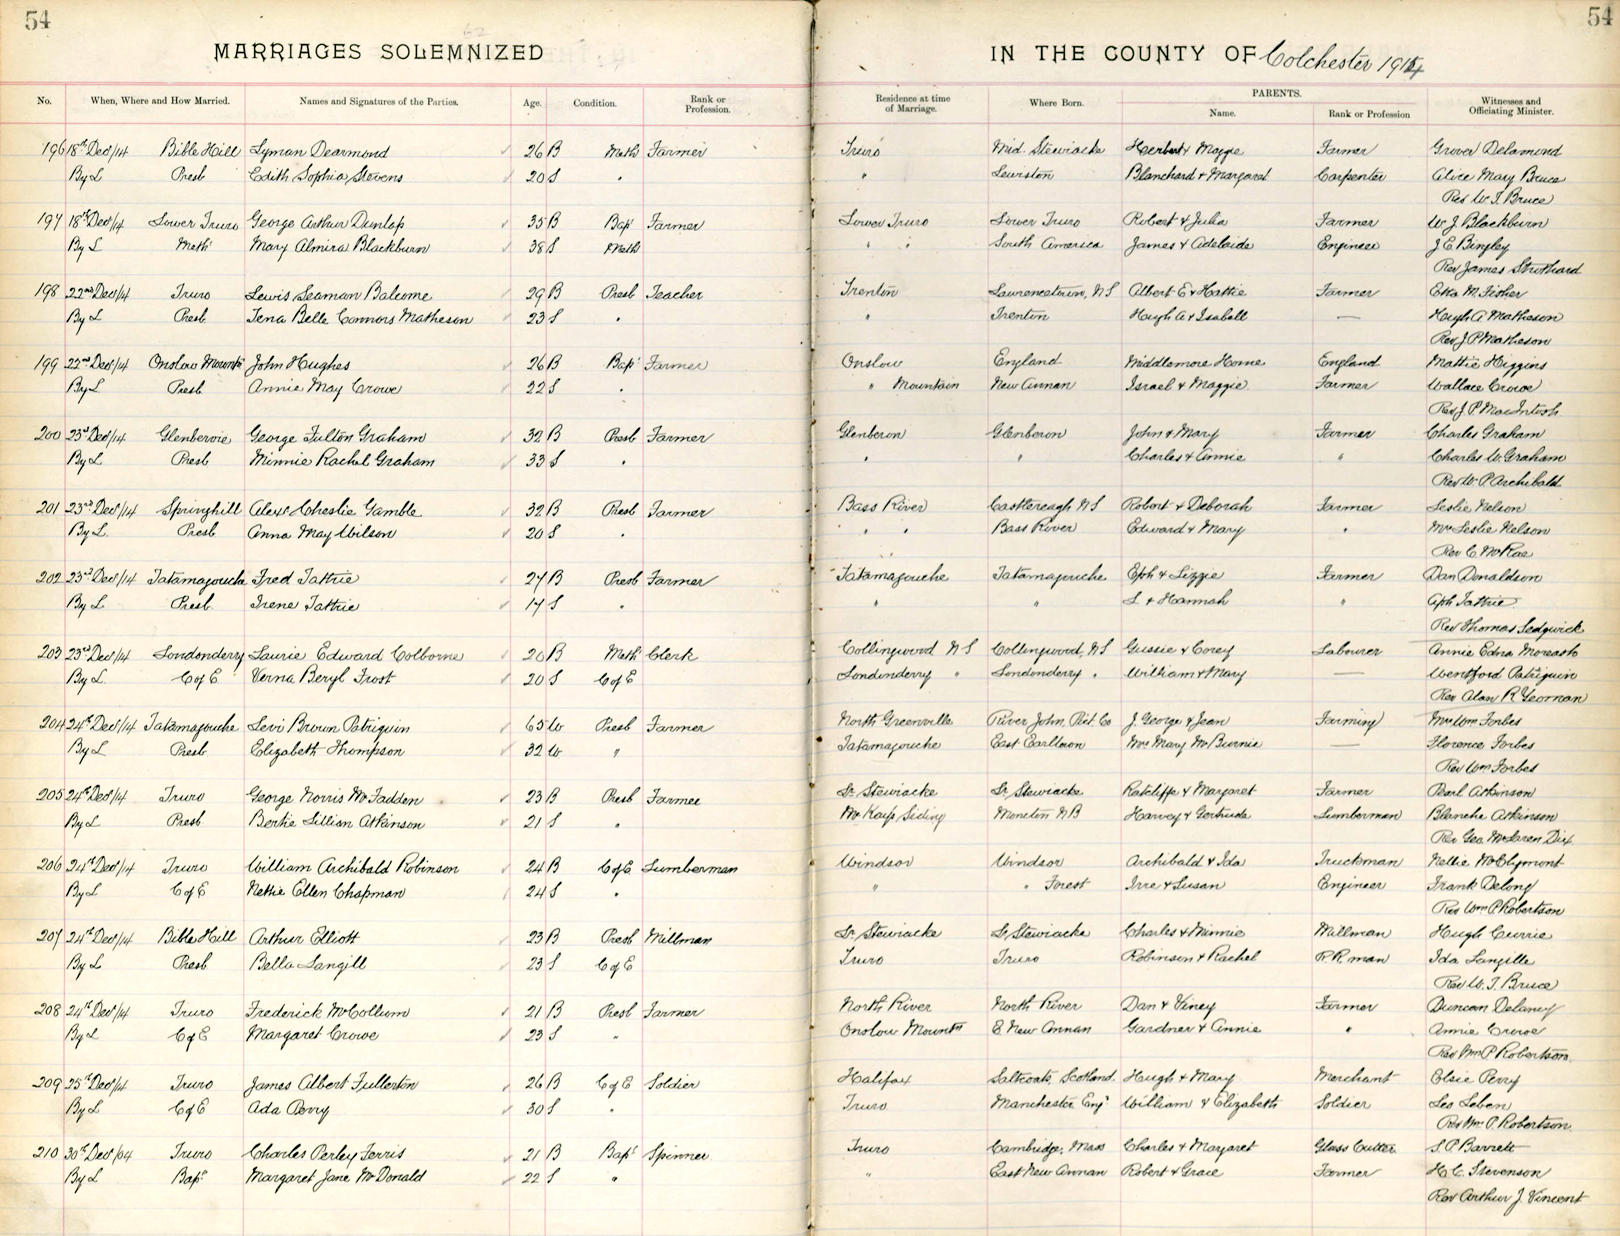 54
54
MARRIAGES SOLEMNIZED
IN THE COUNTY OF Colchester 1914
No. When, Where and How Married. Names and Signatures of the Parties. Age. Condition. Rank or Profession. Residence at time of Marriage. Where Born. PARENTS. Name. Rank or Profession Witnesses and Officiating Minister.
196 18th Dec/14 Bible Hill Lyman Dearmond 26 B Meth Farmer Truro Mid. Stewiacke Herbert & Maggie Farmer Grover Delamond
By L Presb Edith Sophia Stevens 20 S " " Lewiston Blanchard & Margaret Carpenter Alice Mary Bruce
Rev W. T. Bruce
197 18th Dec/14 Lower Truro George Arthur Dunlap 35 B Bap Farmer Lower Truro Lower Truro Robert & Julia Farmer W J Blackburn
By L Meth Mary Almira Blackburn 38 S Meth " " South America James & Adelaide Engineer J E Bingley
Rev James Strothard
198 22nd Dec/14 Truro Lewis Seaman Balcome 29 B Presb Teacher Trenton Lawrencetown, NS Albert E & Hattie Farmer Etta M. Fisher
By L Presb Tena Belle Connors Matheson 23 S " " Trenton Hugh A & Isabell — Hugh A Matheson
Rev J P Matheson
199 22nd Dec/14 Onslow Mountn John Hughes 26 B Bap Farmer Onslow England Middlemore Home England Mattie Higgins
By L Presb Annie May Crowe 22 S " " Mountain New Annan Israel & Maggie Farmer Wallace Crowe
Rev J P MacIntosh
200 23rd Dec/14 Glenbervie George Fulton Graham 32 B Presb Farmer Glenberon Glenberon John & Mary Farmer Charles Graham
By L Presb Minnie Rachel Graham 33 S " " " Charles & Annie " Charles W. Graham
Rev W. P Archibald
201 23rd Dec/14 Springhill Alexr Cheslie Gamble 32 B Presb Farmer Bass River Castlereagh NS Robert & Deborah Farmer Leslie Nelson
By L. Presb Anna May Wilson 20 S " " " Bass River Edward & Mary " Mrs Leslie Nelson
Rev C. McRae
202 23rd Dec/14 Tatamagouche Fred Tattrie 27 B Presb Farmer Tatamagouche Tatamagouche Eph & Lizzie Farmer Dan Donaldson
By L Presb. Irene Tattrie 17 S " " " L & Hannah " Aph Tattrie
Rev Thomas Sedgwick
203 23rd Dec/14 Londonderry Laurie Edward Colborne 20 B Meth Clerk Collingwood NS Collingwood, NS Gussie & Corey Labourer Annie Edna Moreash
By L. C of E Verna Beryl Frost 20 S C of E Londonderry " Londonderry " William & Mary — Wentford Patriquin
Rev Alan R Yeoman
204 24th Dec/14 Tatamagouche Levi Brown Patriquin 65 W Presb Farmer North Greenville River John, Pict Co J. George & Jean Farming Mrs Wm Forbes
By L Presb Elizabeth Thompson 32 W " Tatamagouche East Earltown Mrs Mary McBurnie — Florence Forbes
Rev Wm Forbes
205 24th Dec/14 Truro George Norris McFadden 23 B Presb Farmer Lr Stewiacke Lr Stewiacke Ratcliffe & Margaret Farmer Pearl Atkinson
By L Presb Bertie Lillian Atkinson 21 S " McKays Siding Moncton NB Harvey & Gertrude Lumberman Blanche Atkinson
Rev Geo. McLaren Dix
206 24th Dec/14 Truro William Archibald Robinson 24 B C of E Lumberman Windsor Windsor Archibald & Ida Truckman Nellie McClymont
By L C of E Nettie Ellen Chapman 24 S " " " Forest Irre & Susan Engineer Frank Delong
Rev Wm P Robertson
207 24th Dec/14 Bible Hill Arthur Elliott 23 B Presb Millman Lr Stewiacke Lr Stewiacke Charles & Minnie Millman Hugh Currie
By L Presb Bella Langill 23 S C of E Truro Truro Robinson & Rachel R.R. man Ida Langille
Rev W. T. Bruce
208 24th Dec/14 Truro Frederick McCollum 21 B Presb Farmer North River North River Dan & Viney Farmer Duncan Delaney
By L C of E Margaret Crowe 23 S " Onslow Mountn E. New Annan Gardner & Annie " Annie Crowe
Rev Wm P Robertson
209 25th Dec/14 Truro James Albert Fullerton 26 B C of E Soldier Halifax Saltcoats, Scotland. Hugh & Mary Merchant Elsie Perry
By L C of E Ada Perry 30 S " Truro Manchester Eng William & Elizabeth Soldier Leo Leben
Rev Wm. P. Robertson
210 30th Dec/04 Truro Charles Perley Ferris 21 B Bapt Spinner Truro Cambridge, Mass Charles & Margaret Glass Cutter S. P. Barrett
By L Bapt Margaret Jane McDonald 22 S " " East New Annan Robert & Grace Farmer H. C. Stevenson
Rev Arthur J. Vincent